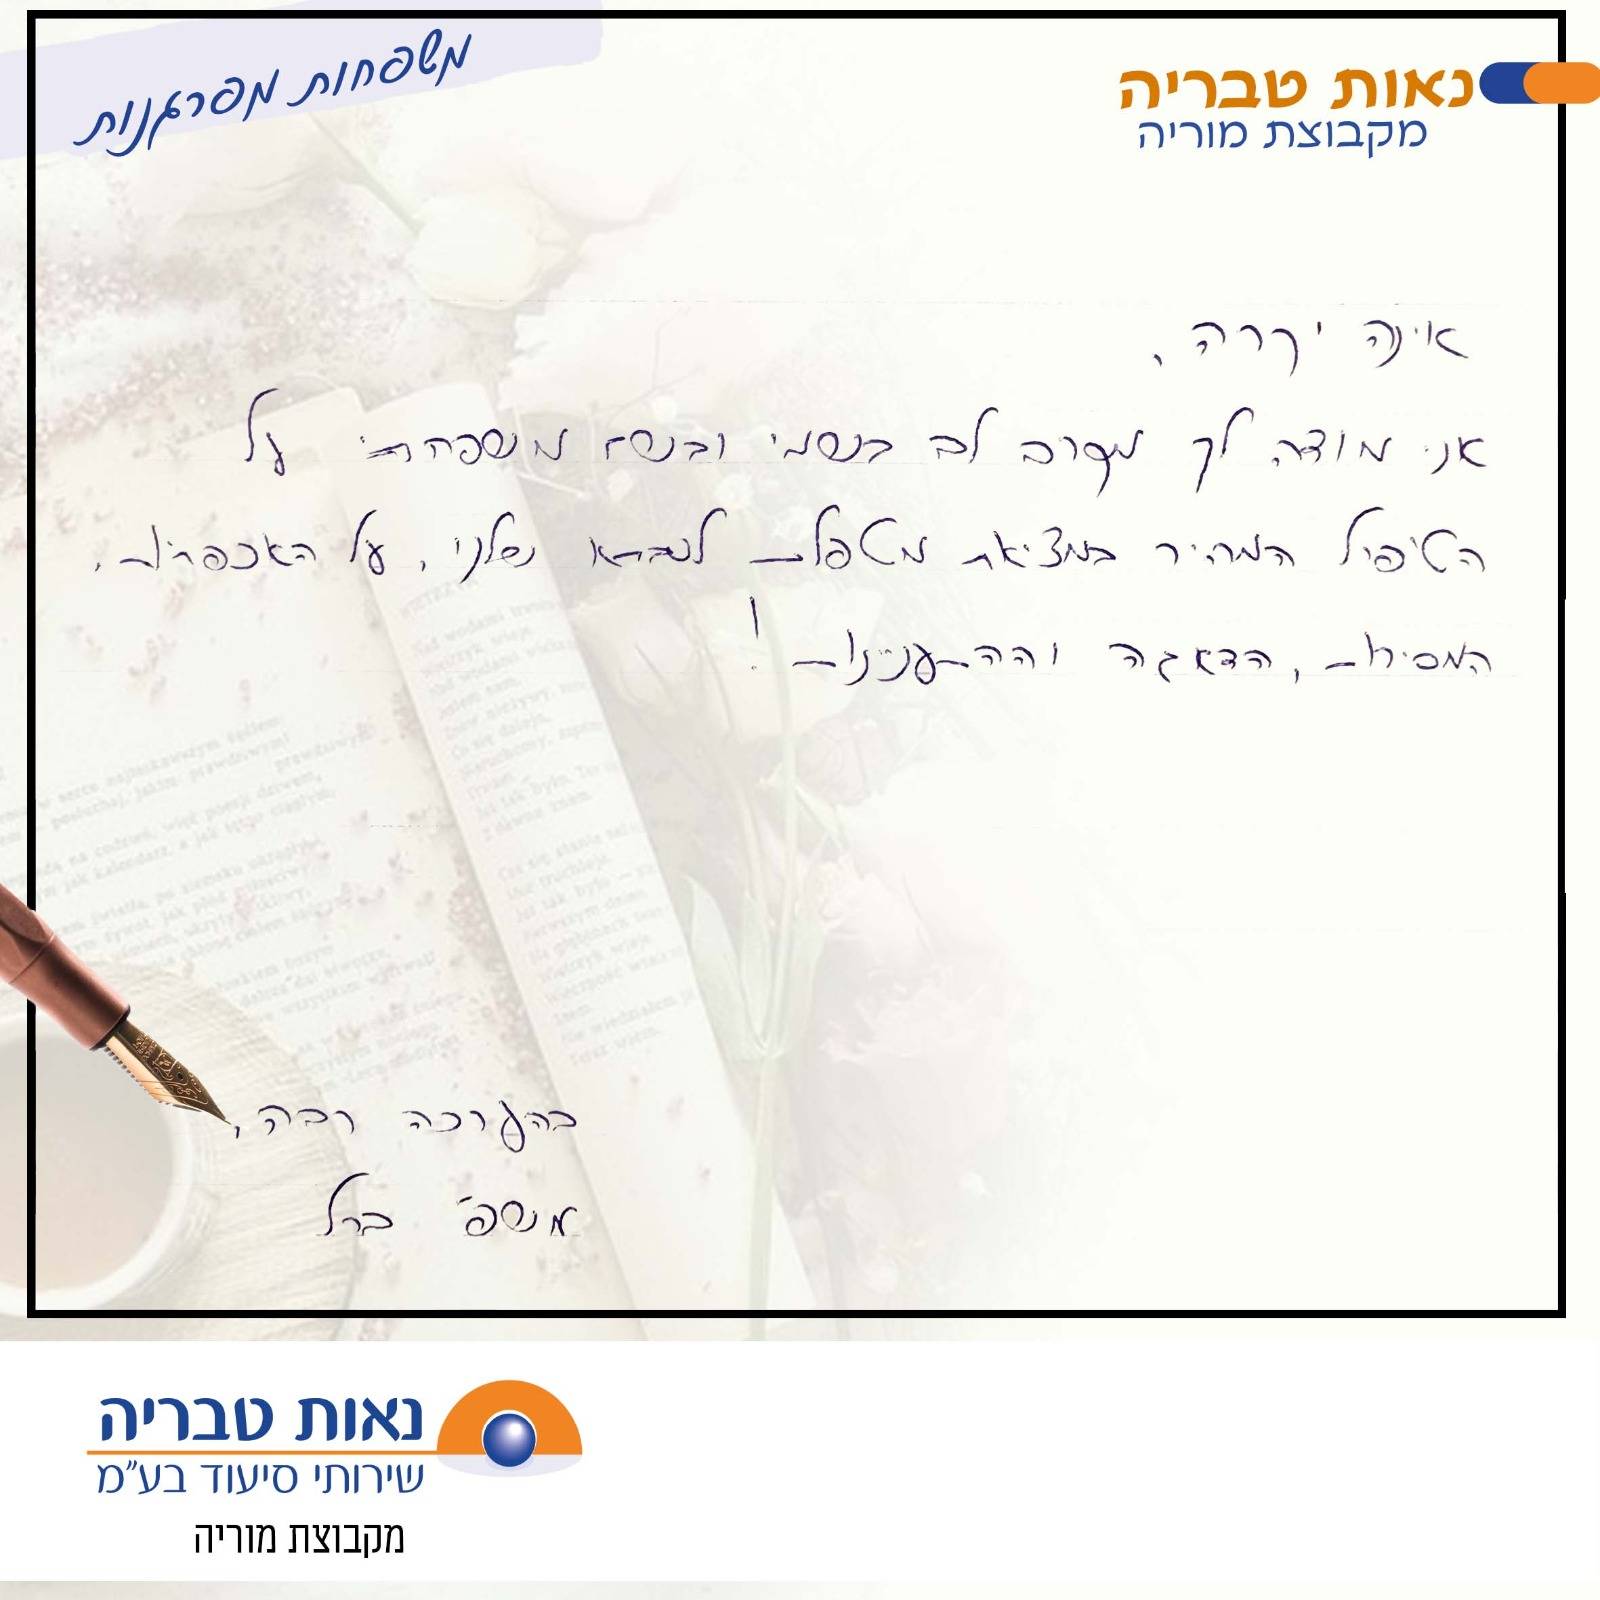 משפחות מפרגנות
נאות טבריה
מקבוצת מוריה
אינה יקרה,
אני מודה לך מקרב לב בשמי ובשם משפחתי על
הטיפול המהיר במציאת מטפלת לסבתא שלנו, על האכפתיות,
המסירות, הדאגה וההתעניינות!
בהערכה רבה,
משפ' ברל
נאות טבריה
שירותי סיעוד בע"מ
מקבוצת מוריה